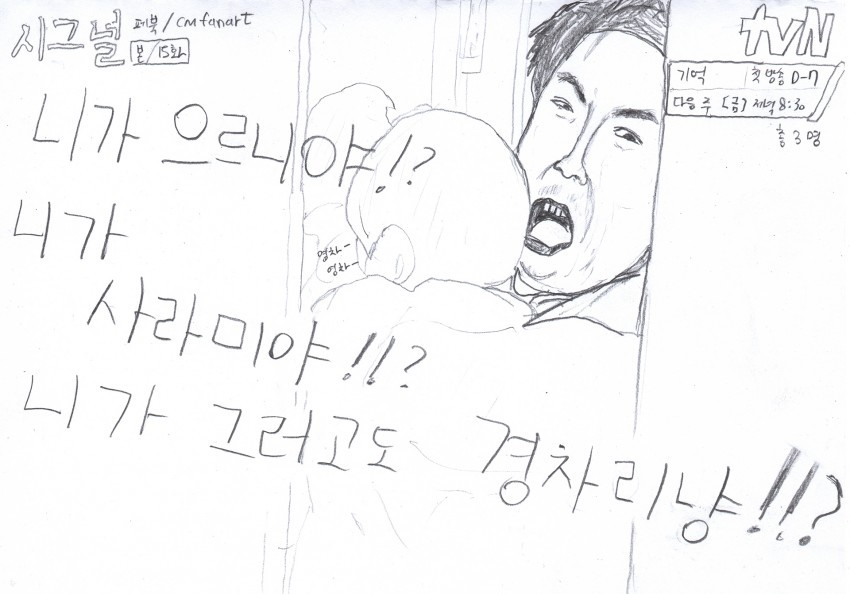 시그널 페북/cmfanart
본/15화
tvN
기억 첫방송 D-7
다음주 [금] 저녁 8:30
총 3명
니가 으르니야!?
니가
사라미야!!?
영차~
영차~
니가 그러고도 경차리냥!!!?